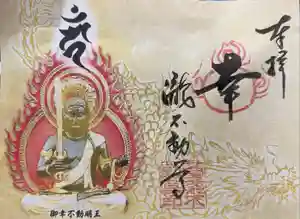 奉拝
幸
瀧不動尊
御幸不動明王